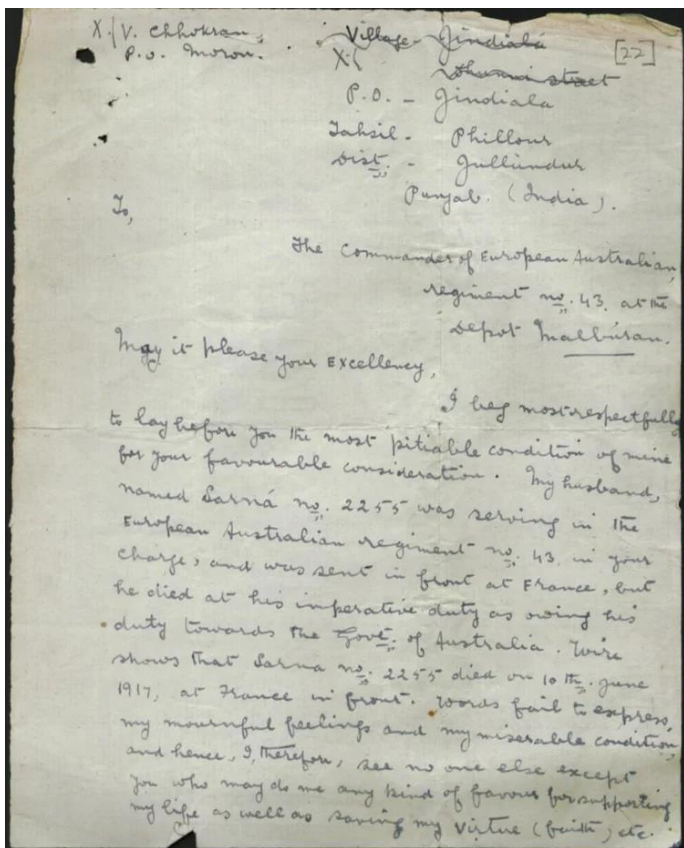 X./V. Chhokran,
P.O. Moron.
[22]
Village - Jindiala
X/
street
P.O. - Jindiala
Tahsil - Phillour
Dist. - Jullundur
Punjab. (India).
To,
The Commander of European Australian,
regiment no. 43. at the
Depot Malbúran.
May it please your Excellency,
I beg most respectfully
to lay before you the most pitiable condition of mine
for your favourable consideration. My husband,
named Sarná no. 2255 was serving in the
European Australian regiment no. 43. in your
charge, and was sent in front at France, but
he died at his imperative duty as owing his
duty towards the Govt. of Australia. Wire
shows that Sarna no. 2255 died on 10 th. June
1917, at France in front. Words fail to express,
my mournful feelings and my miserable condition,
and hence, I, therefore, see no one else except
you who may do me any kind of favour for supporting
my life as well as saving my virtue (faith) etc.